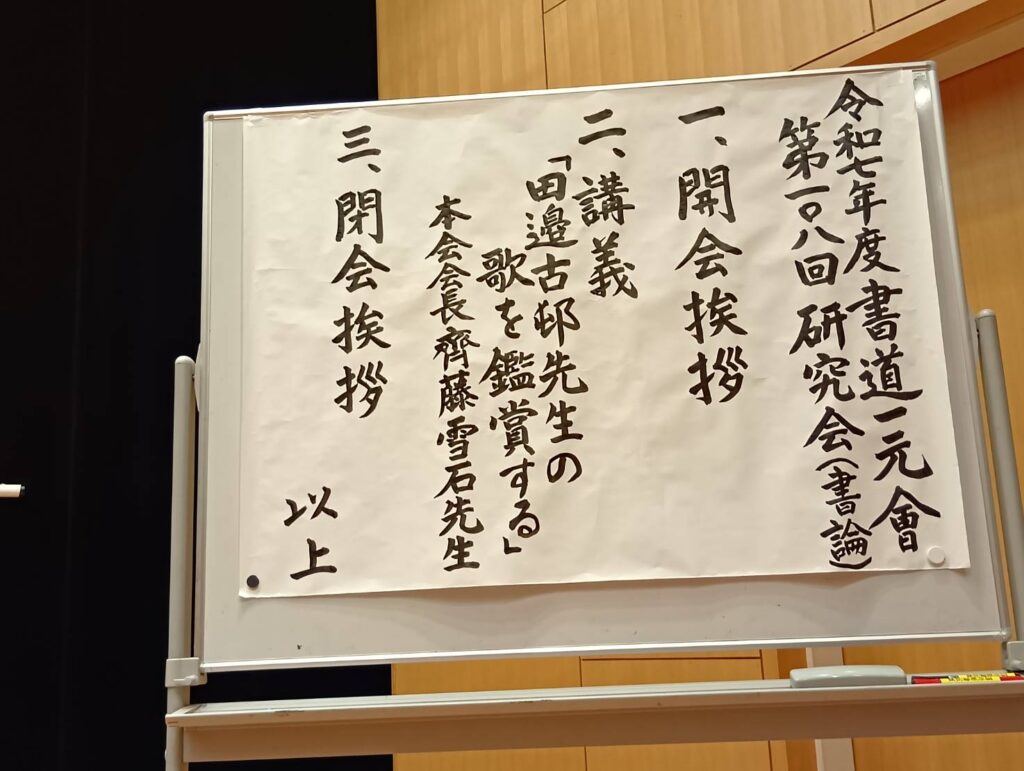 令和七年度書道一元會
第一〇八回研究会(書論)
一、開会挨拶
二、講義
「田邉古邨先生の
歌を鑑賞する」
本会会長齊藤雪石先生
三、閉会挨拶
以上